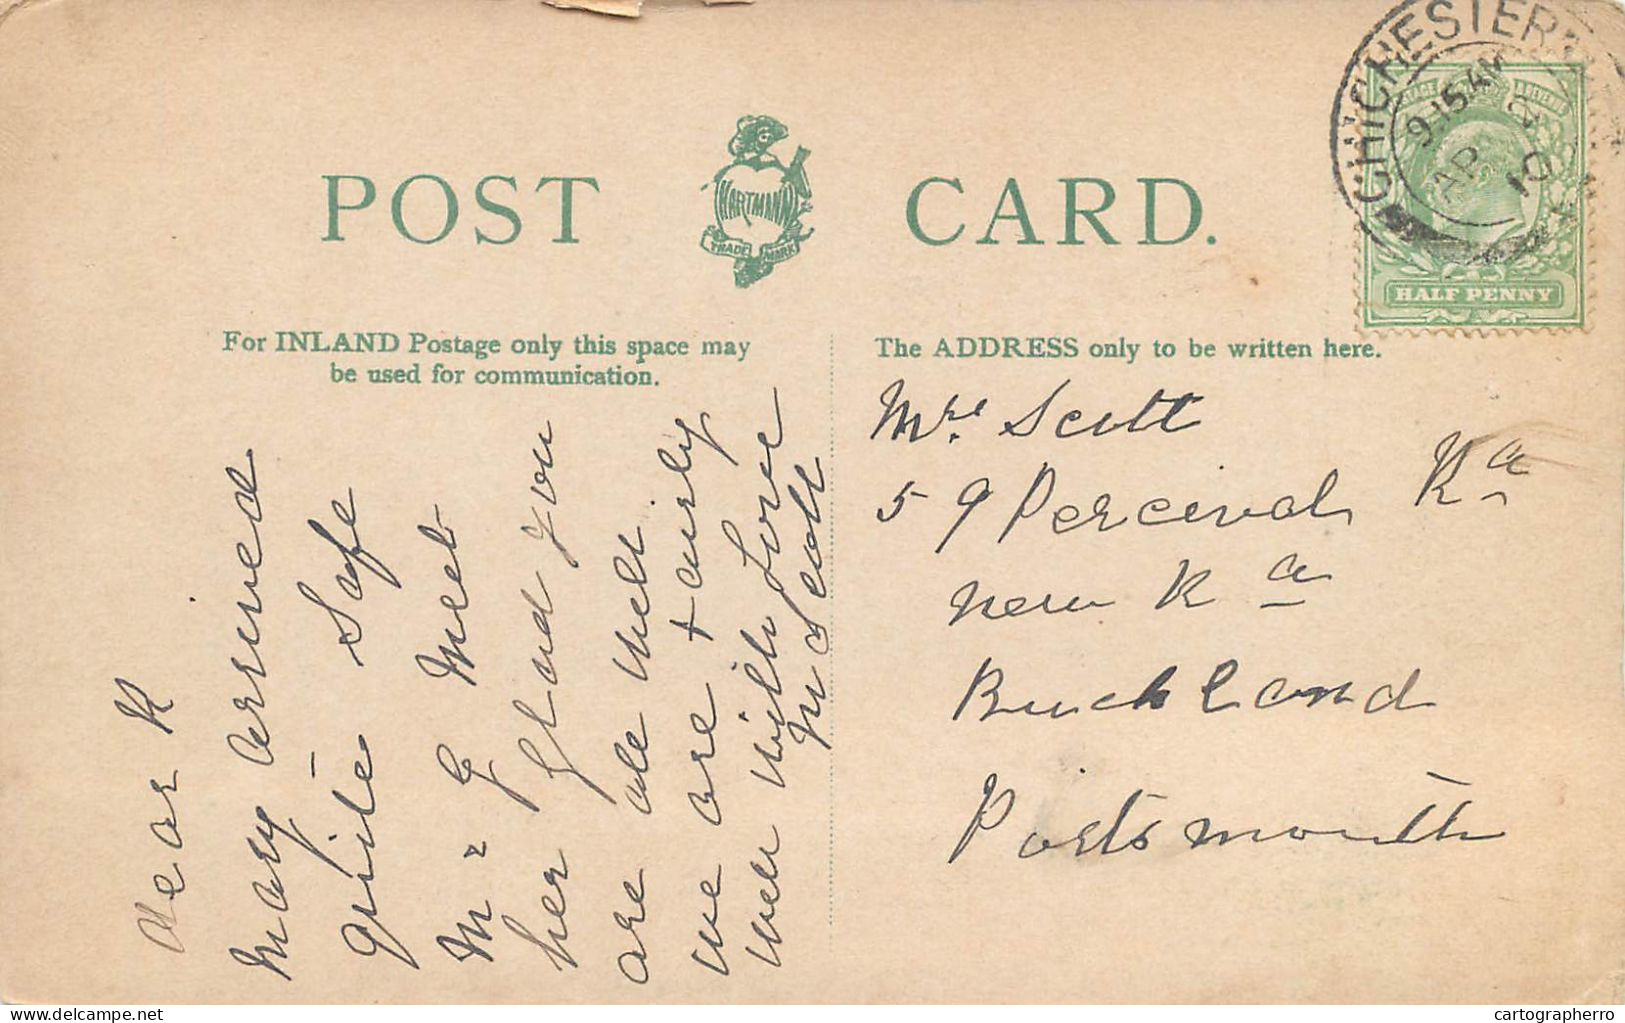 POST CARD.
HARTMANN
TRADE MARK
For INLAND Postage only this space may
be used for communication.
The ADDRESS only to be written here.
CHICHESTER
9.15 AM
AP 2
10
POSTAGE & REVENUE
HALF PENNY
Dear K
Mary arrived
quite safe
Mr G Met
her glad you
are all well
we are + curly
well with Love
M Scott
Mrs. Scott
59 Percival Rd
New Rd
Buckland
Portsmouth
delcampe.net
cartographerro